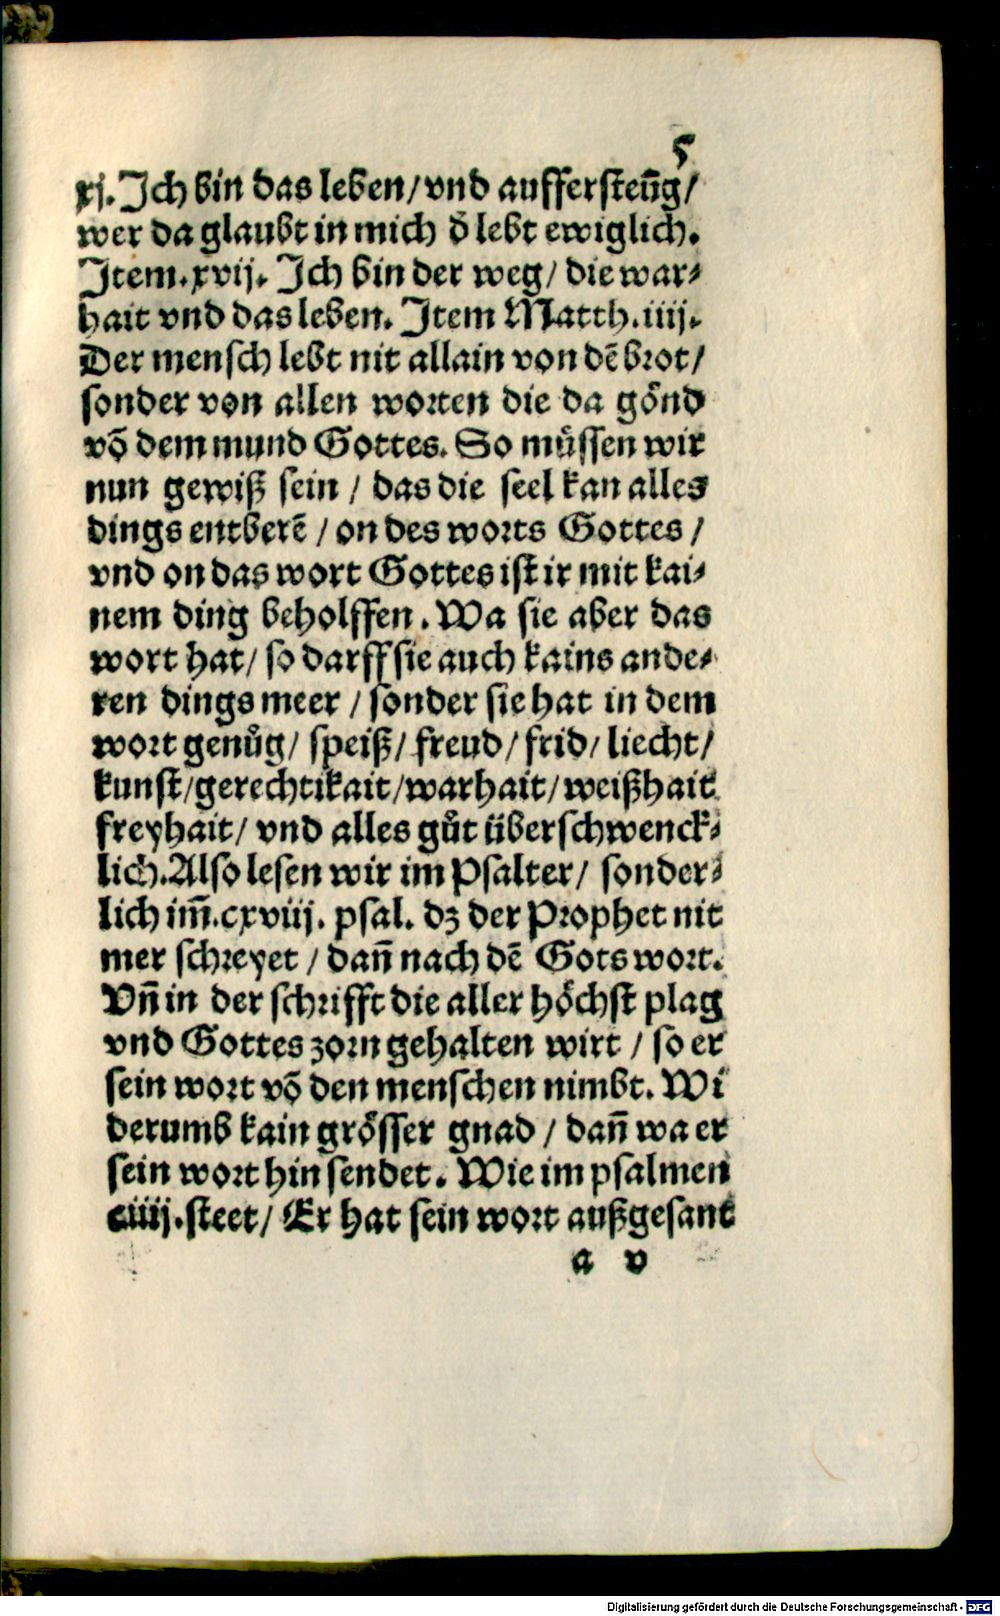 5
xj. Ich bin das leben/ vnd auffersteñg/
wer da glaubt in mich d̄ lebt ewiglich.
Item. xvij. Ich bin der weg/ die war⸗
hait vnd das leben. Item Matth. iiij.
Der mensch lebt nit allain von dẽ brot/
sonder von allen worten die da gönd
võ dem mund Gottes. So müssen wir
nun gewiß sein / das die seel kan alles
dings entberẽ / on des worts Gottes /
vnd on das wort Gottes ist ir mit kai⸗
nem ding beholffen. Wa sie aber das
wort hat/ so darff sie auch kains ande⸗
ren dings meer / sonder sie hat in dem
wort genůg/ speiß/ freud/ frid/ liecht/
kunst/gerechtikait/warhait/weißhait
freyhait/ vnd alles gůt überschwenck⸗
lich. Also lesen wir im Psalter/ sonder⸗
lich im̃. cxviij. psal. dz der Prophet nit
mer schreyet / dañ nach dẽ Gots wort.
Vñ in der schrifft die aller höchst plag
vnd Gottes zorn gehalten wirt / so er
sein wort võ den menschen nimbt. Wi
derumb kain grösser gnad / dañ wa er
sein wort hin sendet. Wie im psalmen
ciiij. steet/ Er hat sein wort außgesant
a v
Digitalisierung gefördert durch die Deutsche Forschungsgemeinschaft - DFG